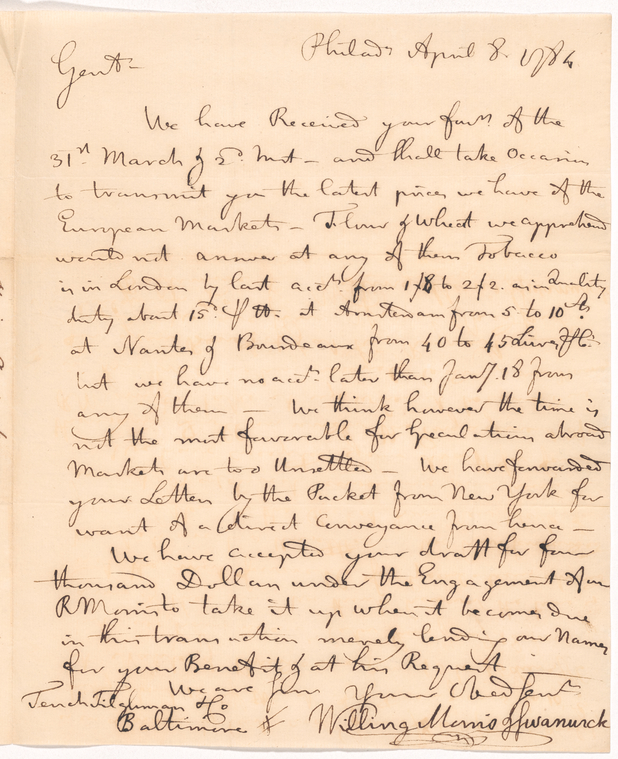 Philada April 8. 1784
Gentn
We have Received your favrs of the
31st March & 2d Inst – and shall take Occasion
to transmit you the latest prices we have of the
European Markets – Flour & Wheat we apprehend
would not answer at any of them Tobacco
is in London by last acct. from 1/8 to 2/2. as in Quality
duty about 15d. ⅌ lb. at Amsterdam from 5 to 10
at Nantes & Bourdeaux from 40 to 45 Livres
but we have no acct. later than Jany. 18 from
any of them – We think however the time is
not the most favorable for Speculations abroad
Markets are too Unsettled – We have forwarded
your Letters by the Packet from New York for
want of a direct Conveyance from hence –
We have accepted your draft for four
thousand Dollars under the Engagement of our
R Morris to take it up when it becomes due
in this transaction merely lending our Names
for your Benefit & at his Request
We are Gen Your Obed Servt
Tench Tilghman & Co
Baltimore Willing Morris & Swanwick